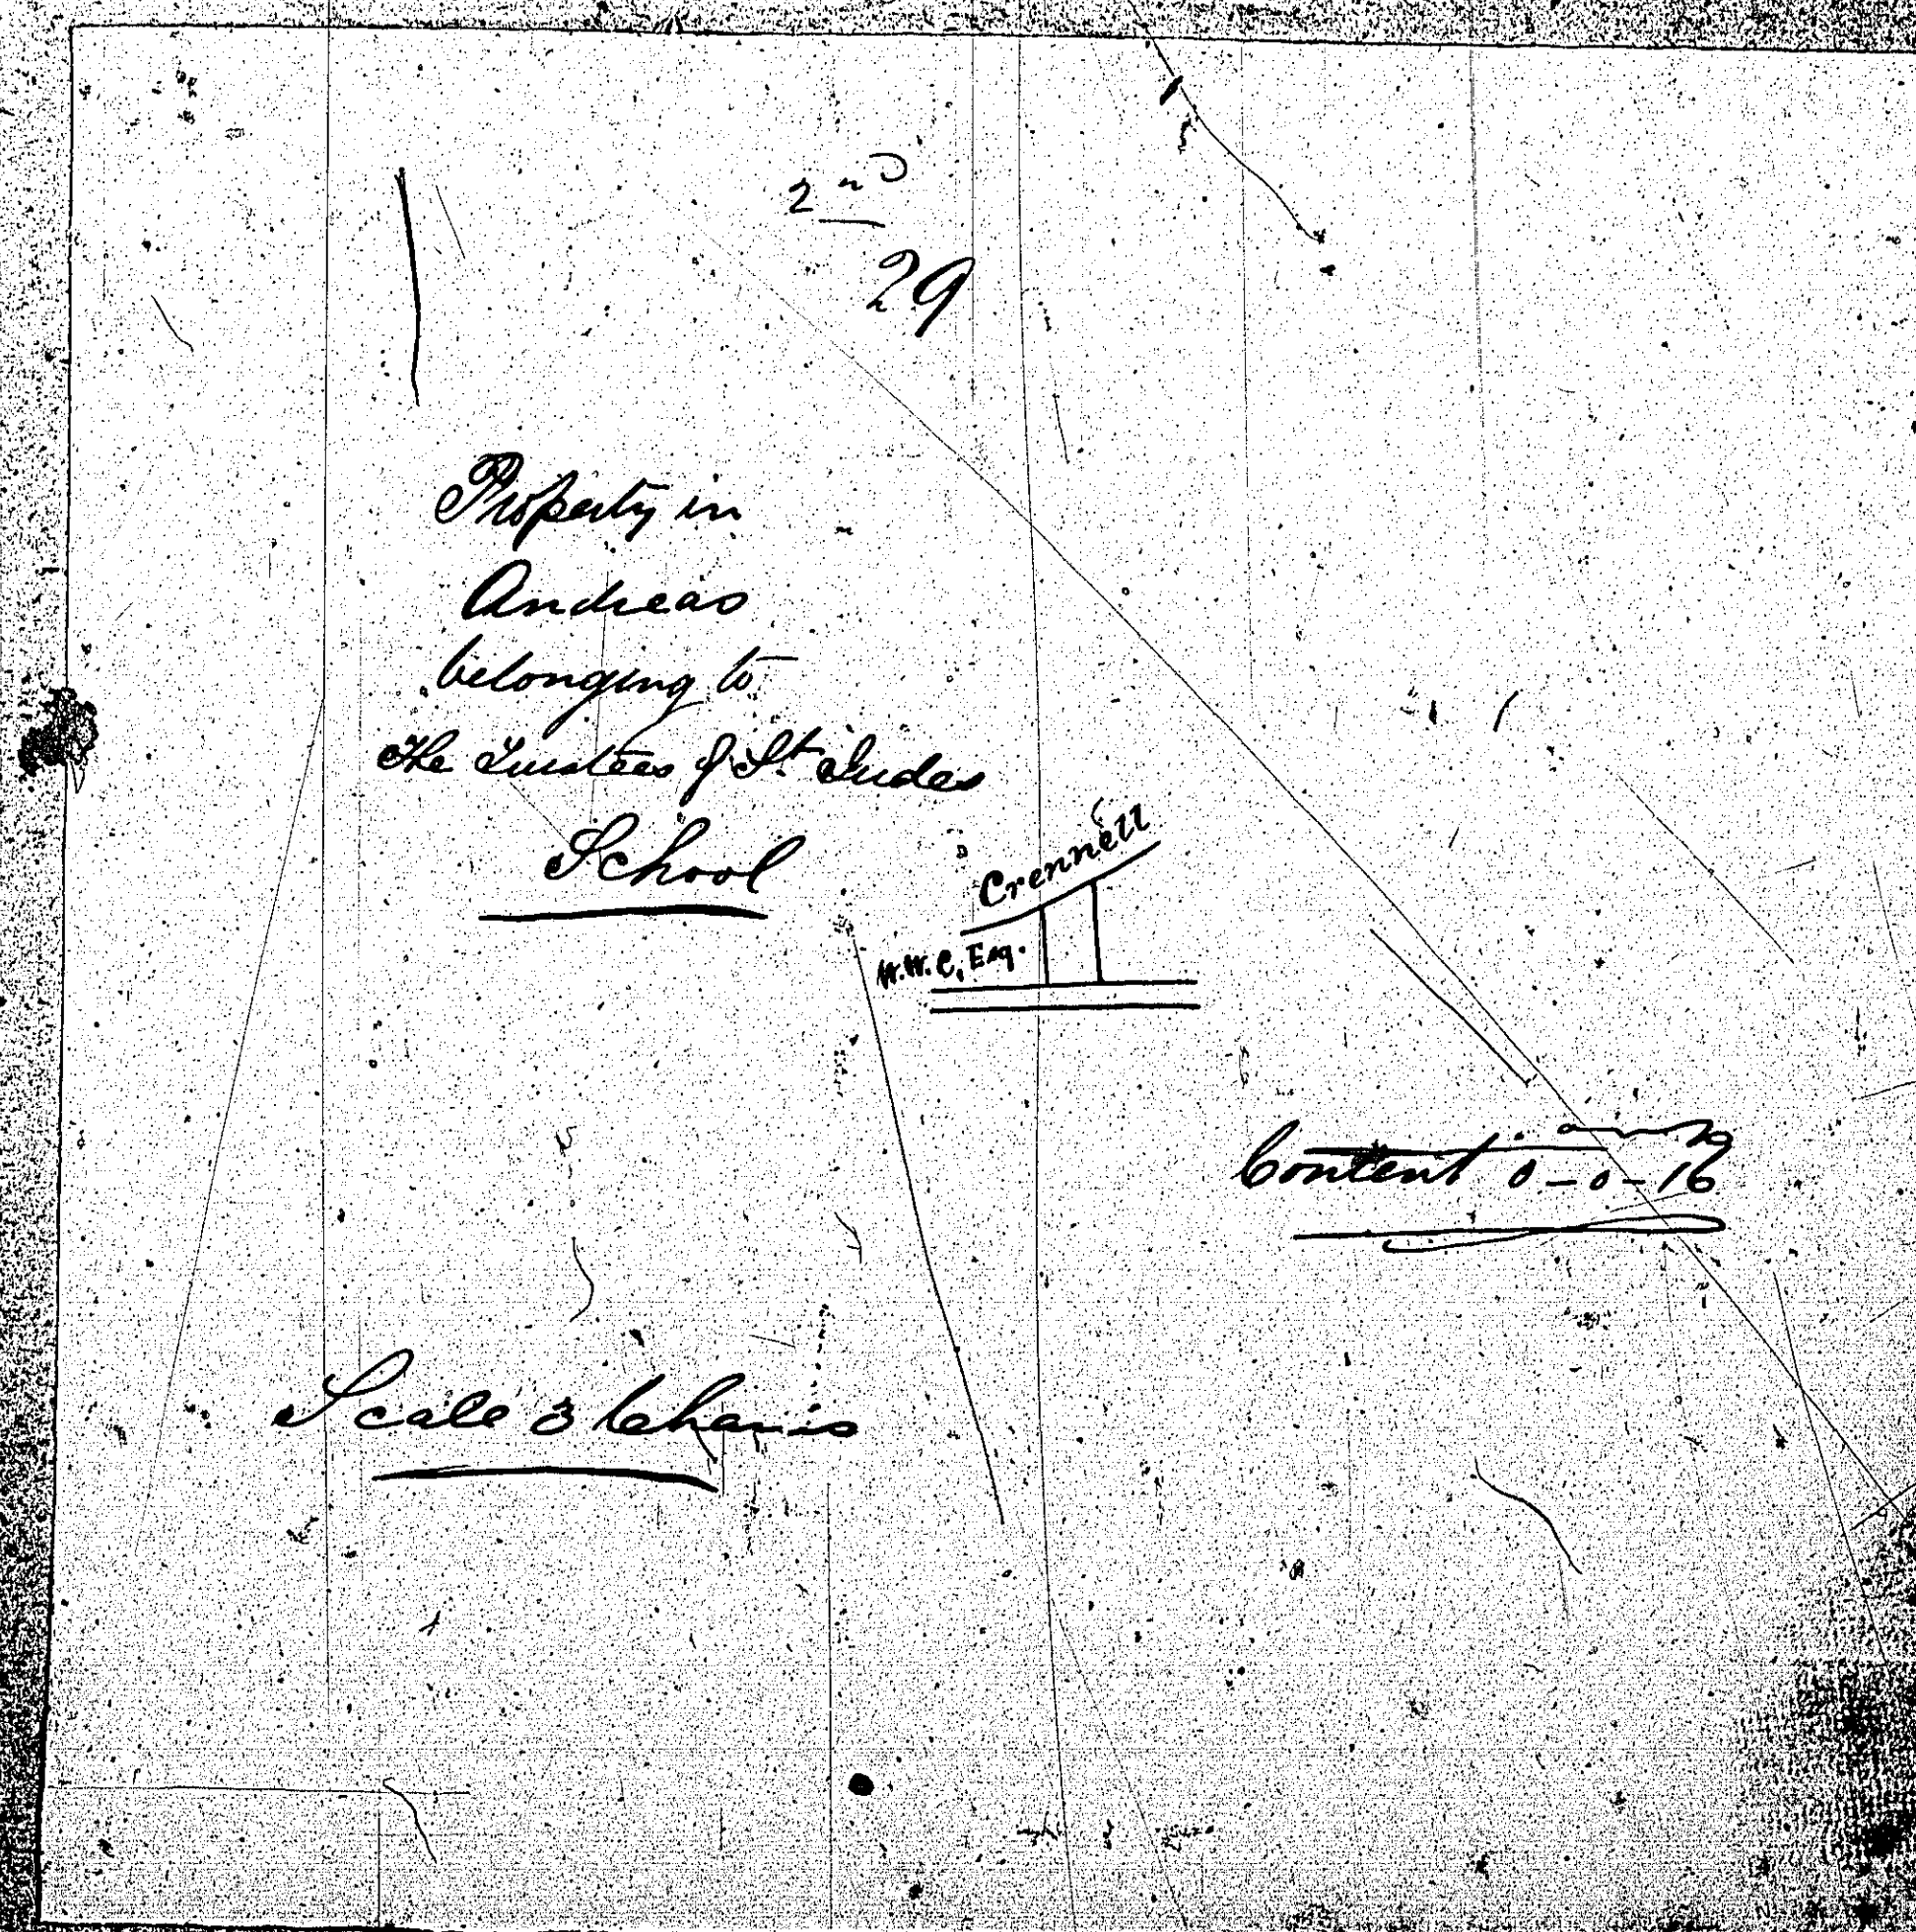 2nd
29
Property in
Andreas
belonging to
The Trustees of St Judes
School
Crennell
W.W.C, Esq.
Content 0-0-16
Scale 3 Chains